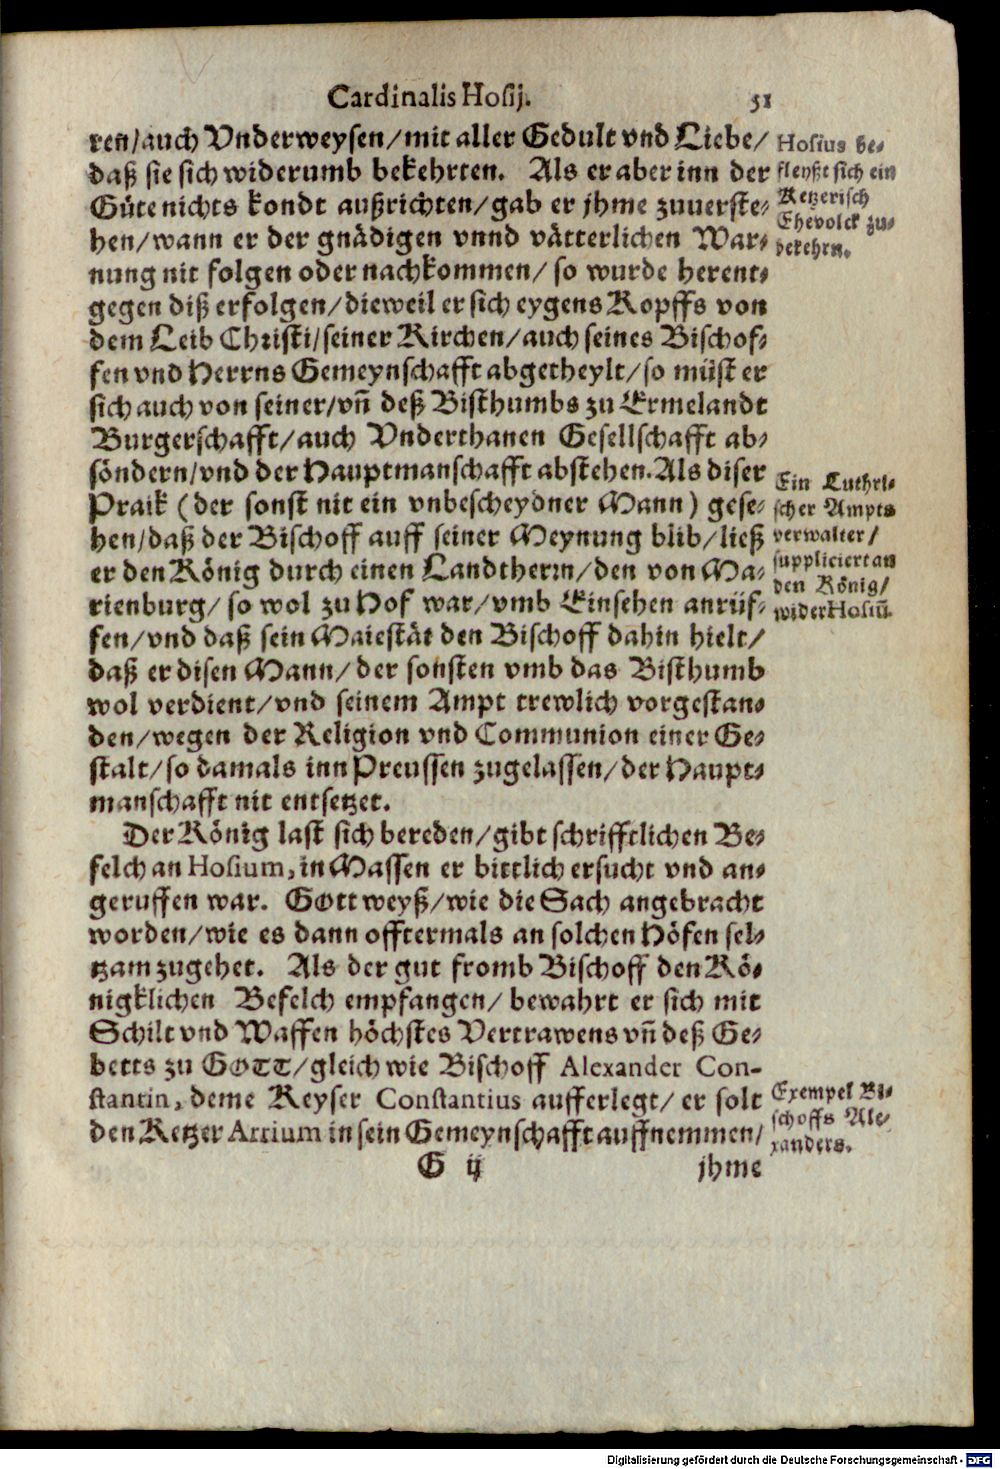 Cardinalis Hosij. 51
ren/auch Vnderweysen/mit aller Gedult vnd Liebe/
daß sie sich widerumb bekehrten. Als er aber inn der
Güte nichts kondt außrichten/gab er jhme zuuerste-
hen/wann er der gnädigen vnnd vätterlichen War-
nung nit folgen oder nachkommen/ so wurde herent-
gegen diß erfolgen/dieweil er sich eygens Kopffs von
dem Leib Christi/seiner Kirchen/auch seines Bischof-
fen vnd Herrns Gemeynschafft abgetheylt/so müst er
sich auch von seiner/vñ deß Bisthumbs zu Ermelandt
Burgerschafft/auch Vnderthanen Gesellschafft ab-
söndern/vnd der Hauptmanschafft abstehen. Als diser
Praik (der sonst nit ein vnbescheydner Mann) gese-
hen/daß der Bischoff auff seiner Meynung blib/ließ
er den König durch einen Landtherrn/den von Ma-
rienburg/ so wol zu Hof war/vmb Einsehen anrüf-
fen/vnd daß sein Maiestät den Bischoff dahin hielt/
daß er disen Mann/der sonsten vmb das Bisthumb
wol verdient/vnd seinem Ampt trewlich vorgestan-
den/wegen der Religion vnd Communion einer Ge-
stalt/so damals inn Preussen zugelassen/der Haupt-
manschafft nit entsetzet.
Der König last sich bereden/gibt schrifftlichen Be-
felch an Hosium, in Massen er bittlich ersucht vnd an-
geruffen war. Gott weyß/wie die Sach angebracht
worden/wie es dann offtermals an solchen Höfen sel-
tzam zugehet. Als der gut fromb Bischoff den Kö-
nigklichen Befelch empfangen/ bewahrt er sich mit
Schilt vnd Waffen höchstes Vertrawens vñ deß Ge-
betts zu GOTT/gleich wie Bischoff Alexander Con-
stantin, deme Keyser Constantius aufferlegt/ er solt
den Ketzer Arrium in sein Gemeynschafft auffnemmen/
G ij jhme
Hosius be-
fleyßt sich ein
Ketzerisch
Ehevolck zu-
bekehrn.
Ein Luthri-
scher Ampts
verwalter/
suppliciert an
den König/
wider Hosiũ.
Exempel Bi-
schoffs Ale-
xanders.
Digitalisierung gefördert durch die Deutsche Forschungsgemeinschaft - DFG